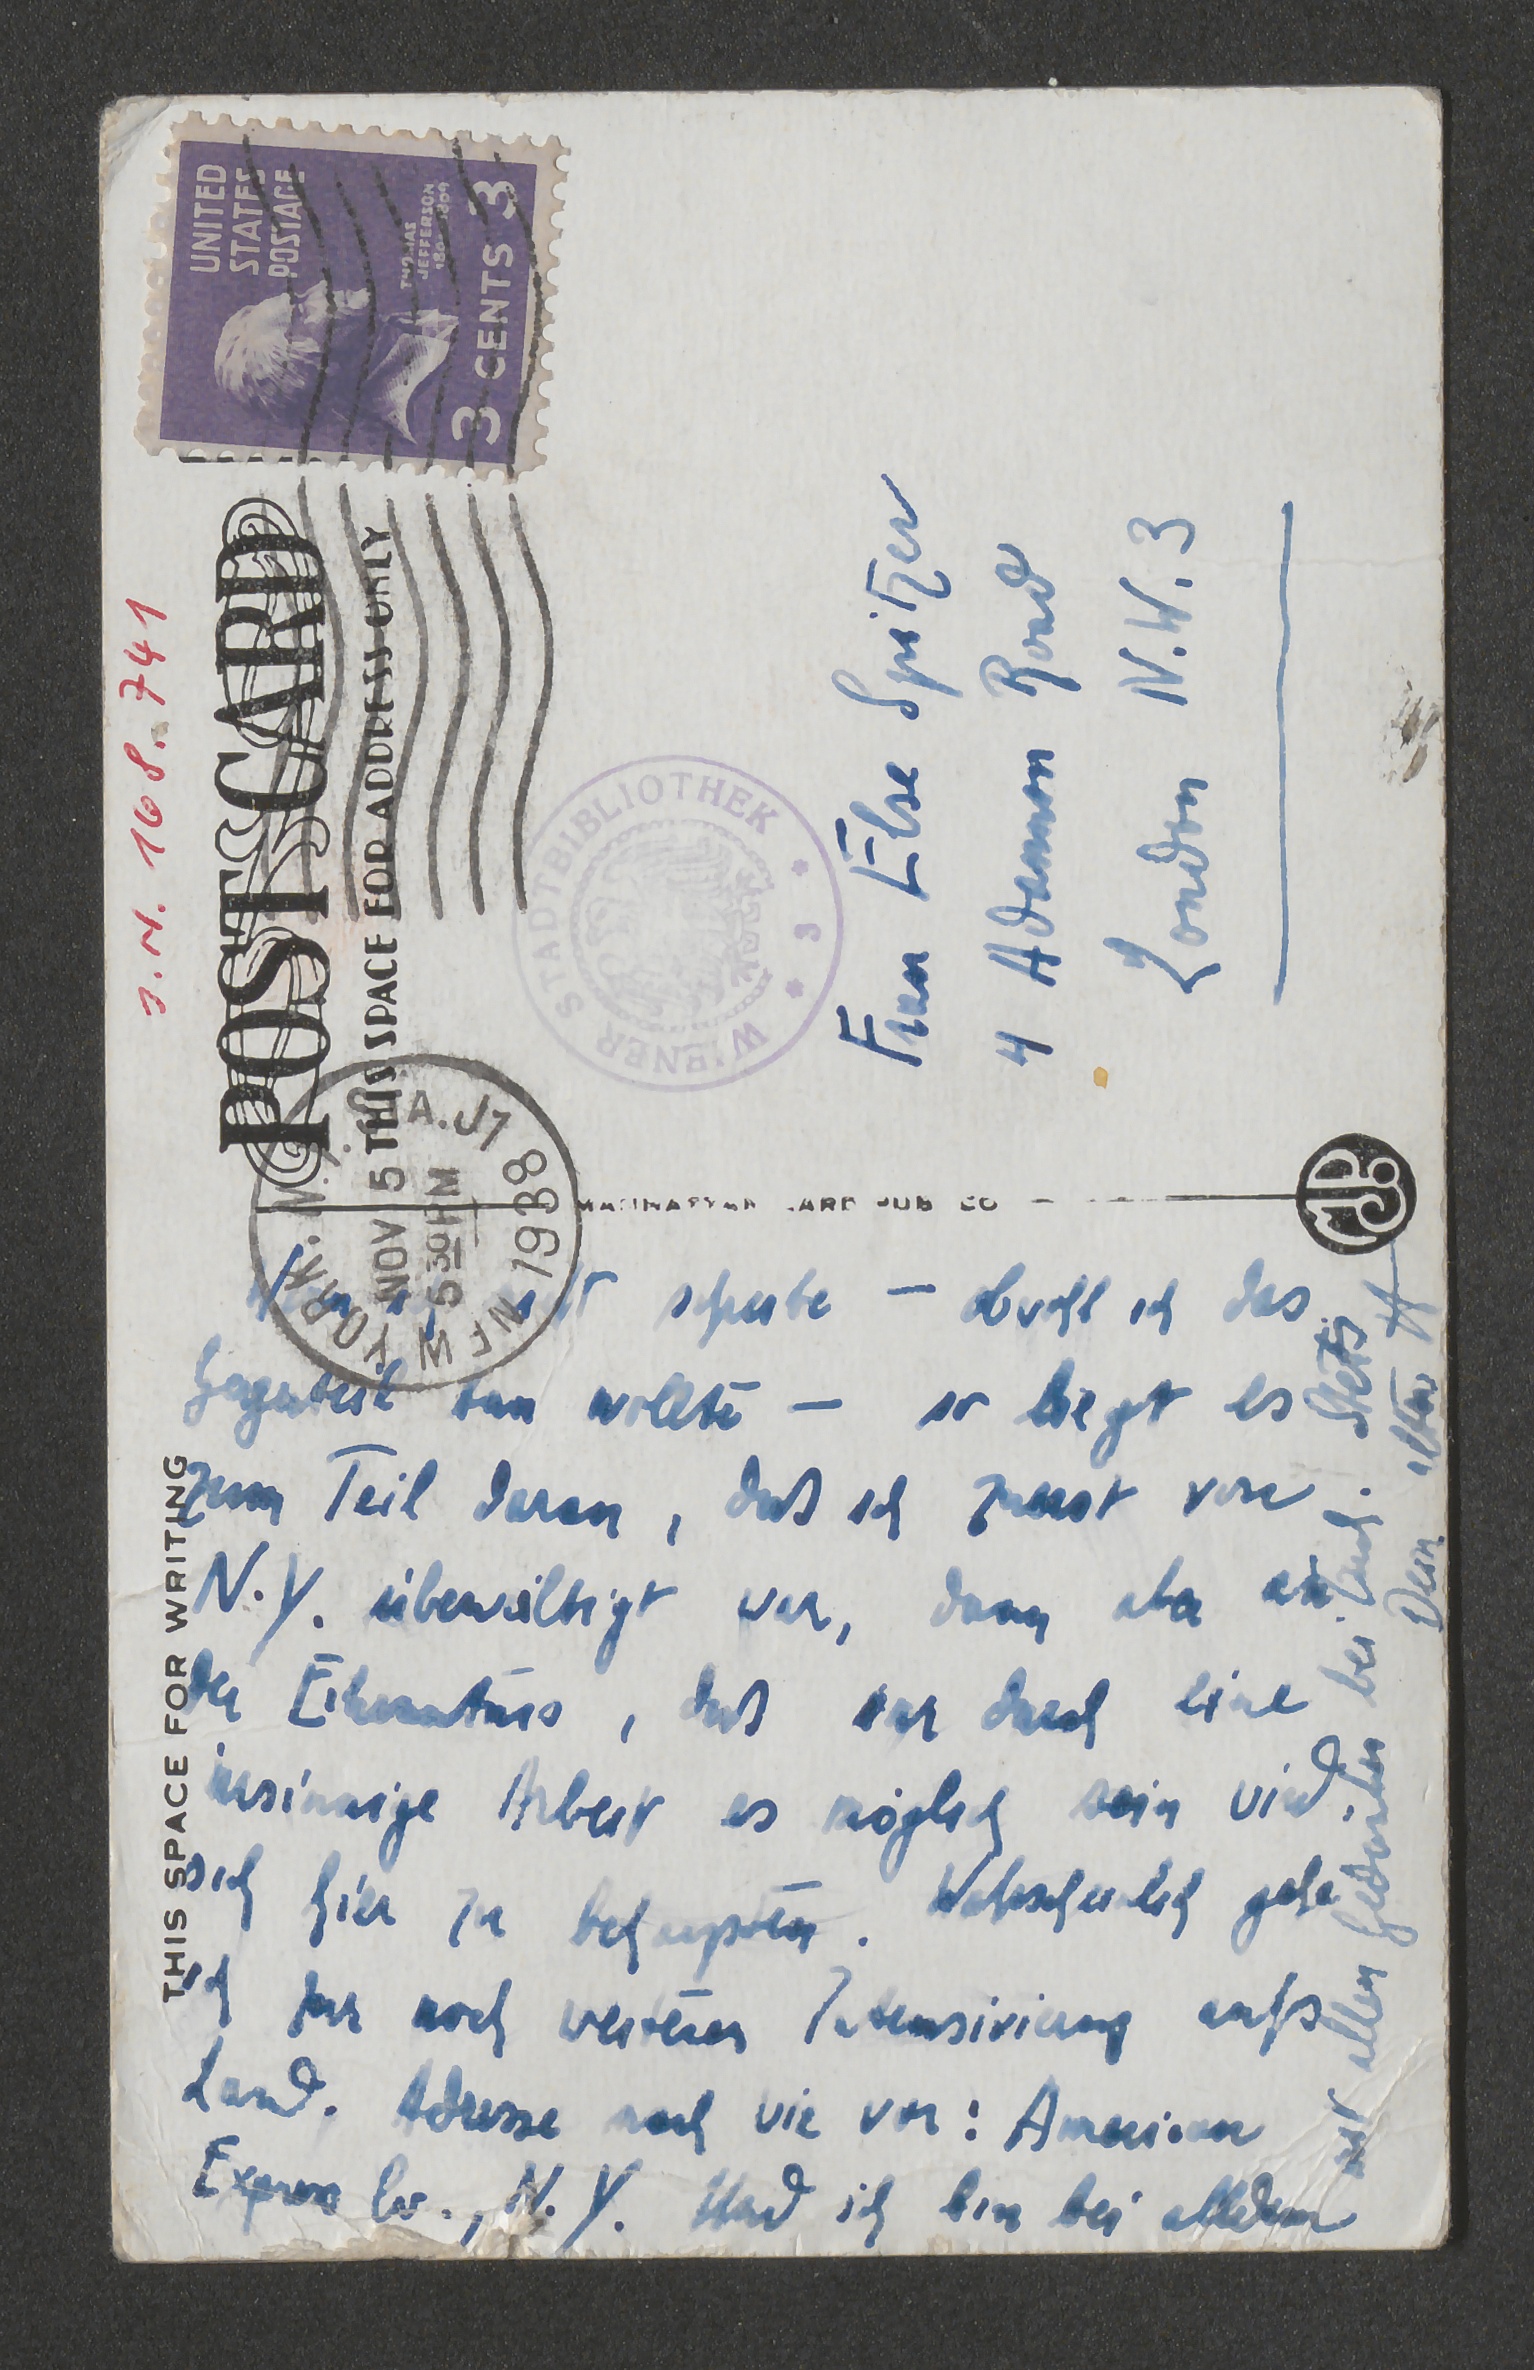 J.N. 168.741
POST CARD
THIS SPACE FOR ADDRESS ONLY
THIS SPACE FOR WRITING
UNITED
STATES
POSTAGE
THOMAS
JEFFERSON
3 CENTS 3
YORK, N.Y.
NOV 5
5 30 PM
1938
WIENER STADTBIBLIOTHEK
* 3 *
MANHATTAN CARD PUB CO
Frau Else Spitzer
4 Adamson Road
London N.W.3
Wenn ich nicht schreibe – obwohl ich das
Gegenteil tun wollte – so liegt es
zum Teil daran, daß ich zuerst von
N.Y. überwältigt war, dann aber von
der Erkenntnis, daß nur durch eine
irrsinnige Arbeit es möglich sein wird
sich hier zu behaupten. Wahrscheinlich gehe
ich zur noch weiteren Intensivierung aufs
Land. Adresse nach wie vor: American
Express Co., N.Y. Und ich bin bei alledem
mit allen Gedanken bei Euch. Stets
Dein alter H